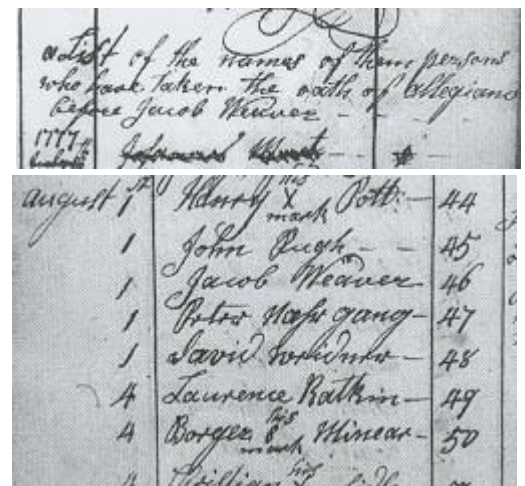 a List of the names of them persons
who have taken the oath of allegiance
before Jacob Weaver - -
1777
august 1st Henry his X mark Pott: - 44
1 John Pugh - - 45
1 Jacob Weaver 46
1 Peter Nahrgang - 47
1 David Weidner - 48
4 Laurence Ratkin - 49
4 Borger his 8 mark Minear - 50
4 William his